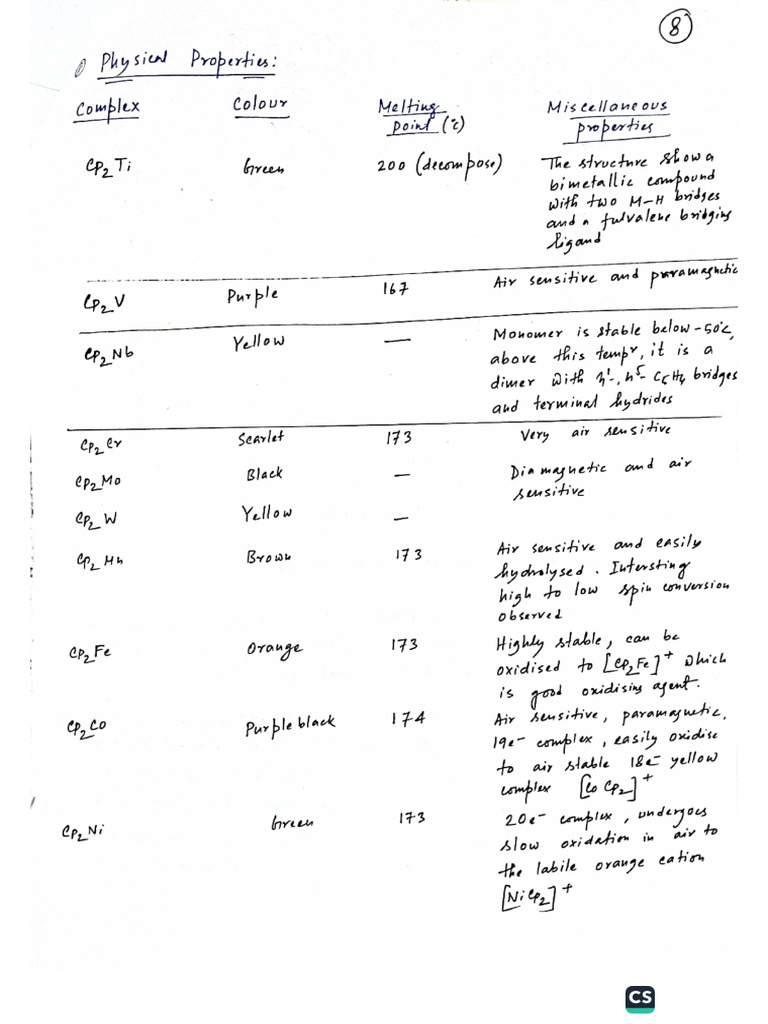 8
Physical Properties:
Complex Colour Melting point (°c) Miscellaneous properties
Cp2Ti Green 200 (decompose) The structure show a
bimetallic compound
with two M-H bridges
and a fulvalene bridging
ligand
Cp2V Purple 167 Air sensitive and paramagnetic
Cp2Nb Yellow — Monomer is stable below -50°c,
above this tempr, it is a
dimer with η1-, η5- C5H4 bridges
and terminal hydrides
Cp2Cr Scarlet 173 Very air sensitive
Cp2Mo Black — Diamagnetic and air
sensitive
Cp2W Yellow —
Cp2Mn Brown 173 Air sensitive and easily
hydrolysed. Intersting
high to low spin conversion
observed
Cp2Fe Orange 173 Highly stable, can be
oxidised to [Cp2Fe]+ which
is good oxidising agent.
Cp2Co Purple black 174 Air sensitive, paramagnetic,
19e- complex, easily oxidise
to air stable 18e- yellow
complex [CoCp2]+
Cp2Ni Green 173 20e- complex, undergoes
slow oxidation in air to
the labile orange cation
[NiCp2]+
CS